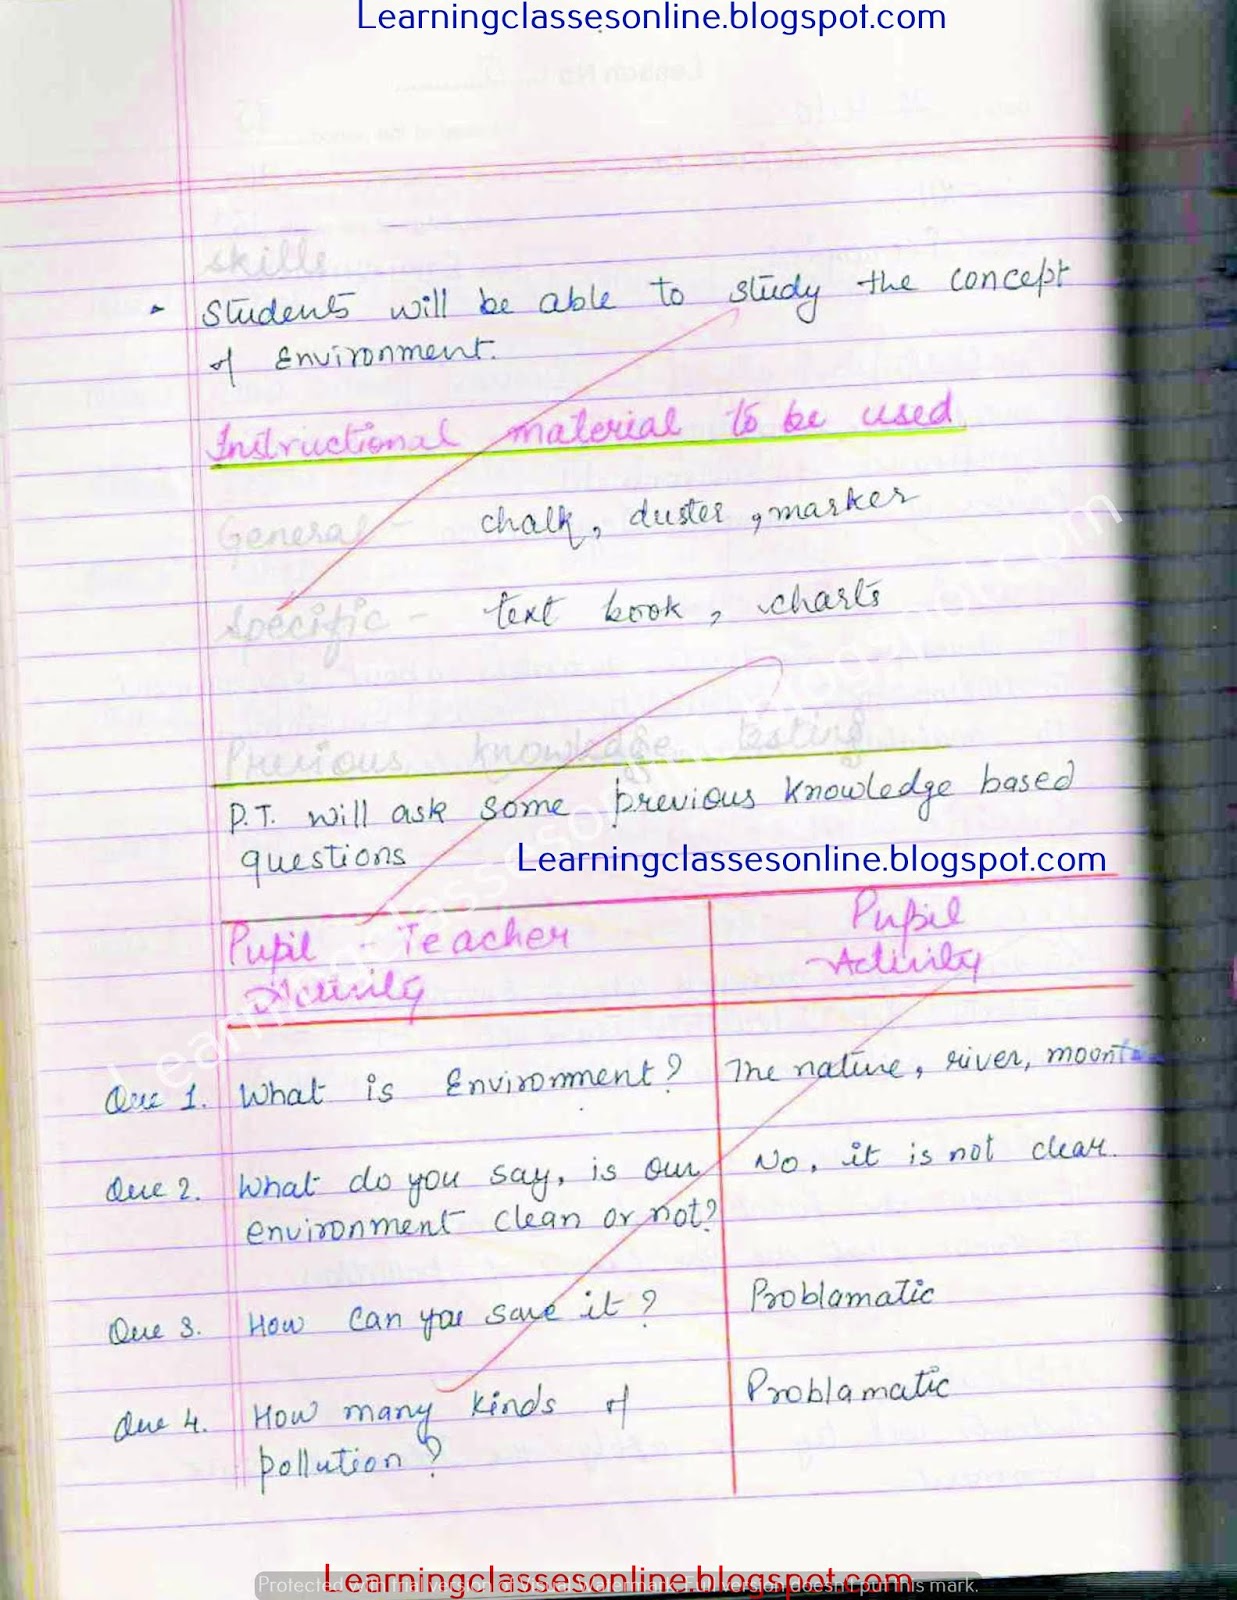 Learningclassesonline.blogspot.com
skills
- Students will be able to study the concept
of Environment.
Instructional material to be used
General - chalk, duster, marker
Specific - text book, charts
Previous knowledge testing
P.T. will ask some previous knowledge based
questions
Learningclassesonline.blogspot.com
Pupil - Teacher Activity
Pupil Activity
Que 1. What is Environment? The nature, river, mount
Que 2. What do you say, is our No, it is not clear.
environment clean or not?
Que 3. How can you save it? Problamatic
Que 4. How many kinds of Problamatic
pollution?
Learningclassesonline.blogspot.com
Learningclassesonline.blogspot.com
Protected with trial version of Visual Watermark. Full version doesn't put this mark.